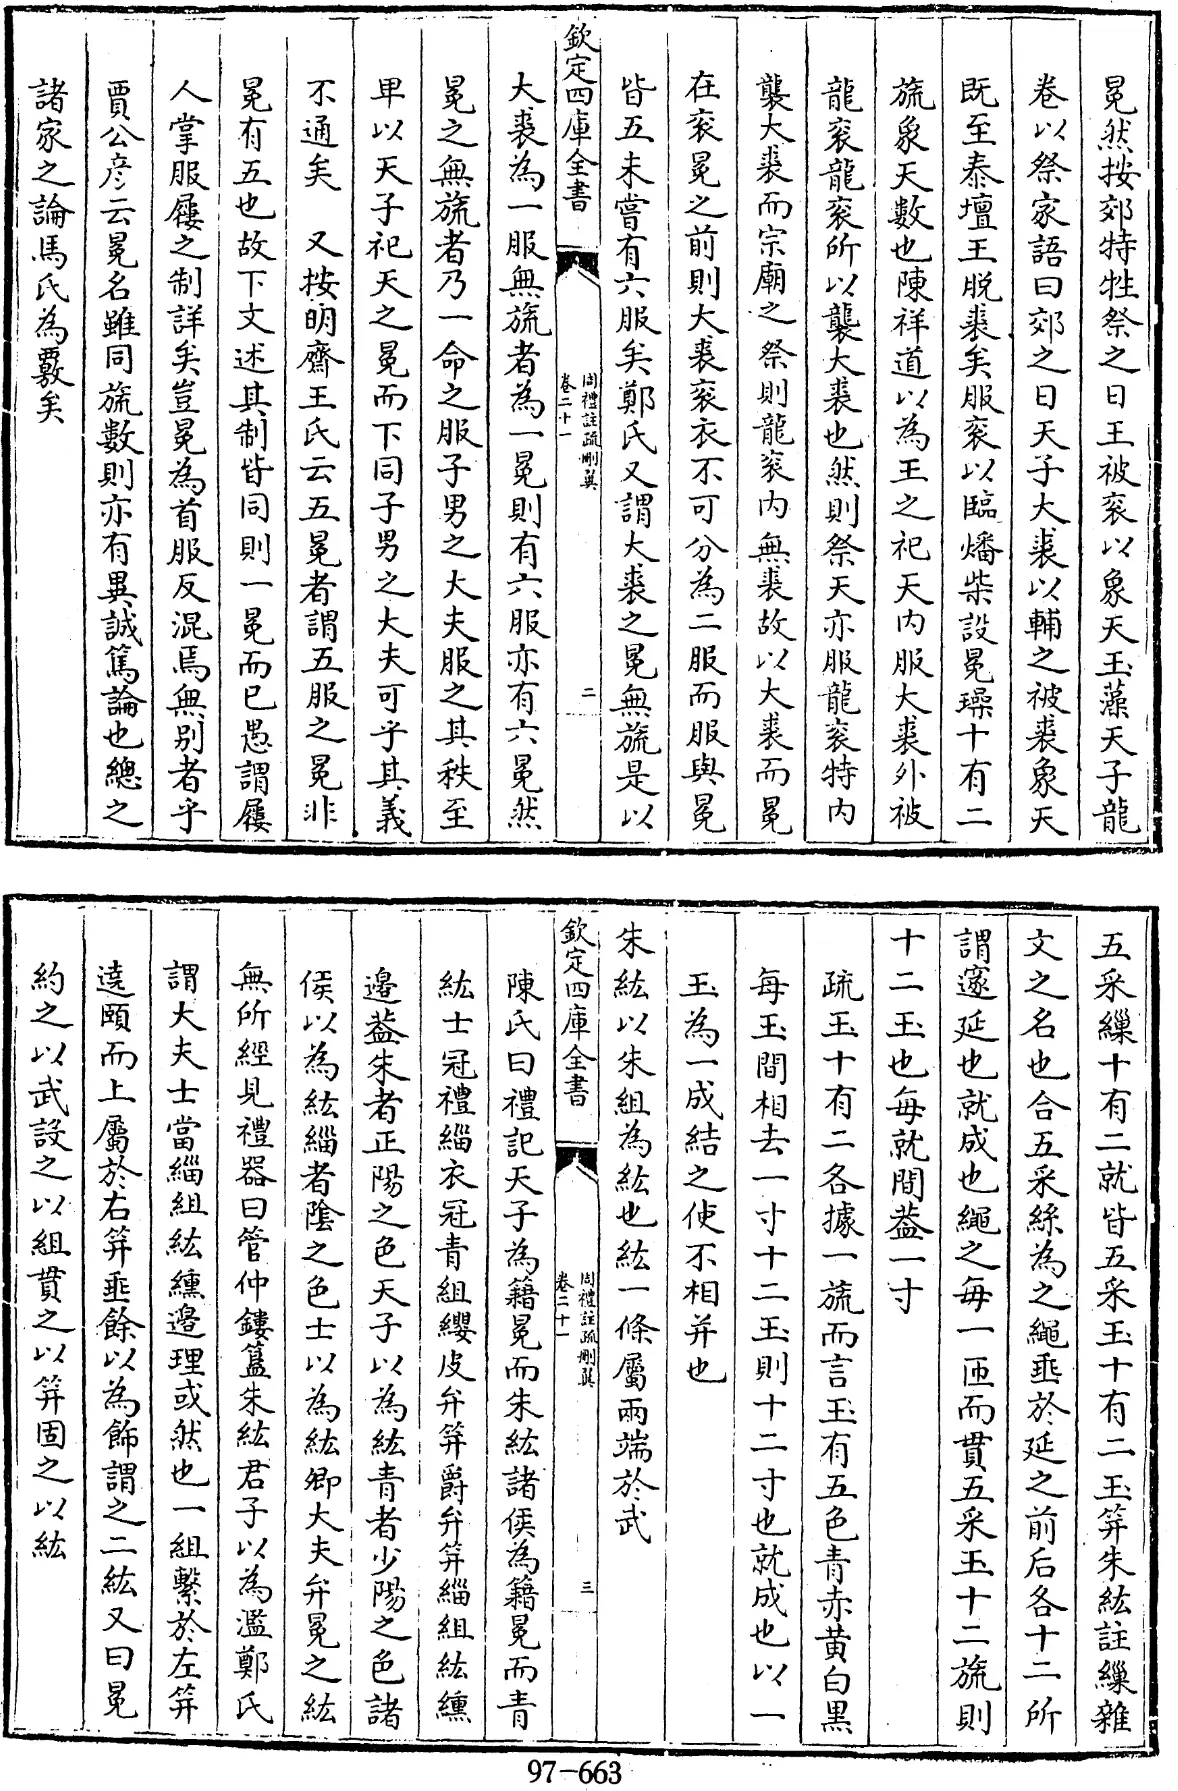 冕然按郊特牲祭之日王被衮以象天玉藻天子龍
卷以祭家語曰郊之日天子大裘以黼之被裘象天
既至泰壇王脱裘矣服衮以臨燔柴設冕璪十有二
旒象天數也陳祥道以為王之祀天内服大裘外被
龍衮龍衮所以襲大裘也然則祭天亦服龍衮特内
襲大裘而宗廟之祭則龍衮内無裘故以大裘而冕
在衮冕之前則大裘衮衣不可分為二服而服與冕
皆五未嘗有六服矣鄭氏又謂大裘之冕無旒是以
欽定四庫全書
周禮註疏刪翼
卷二十一
二
大裘為一服無旒者為一冕則有六服亦有六冕然
冕之無旒者乃一命之服子男之大夫服之其秩至
卑以天子祀天之冕而下同子男之大夫可乎其義
不通矣 又按明齋王氏云五冕者謂五服之冕非
冕有五也故下文述其制皆同則一冕而已愚謂屨
人掌服屨之制詳矣豈冕為首服反混焉無别者乎
賈公彦云冕名雖同旒數則亦有異誠篤論也總之
諸家之論馬氏為覈矣
五采繅十有二就皆五采玉十有二玉笄朱紘註繅雜
文之名也合五采絲為之繩垂於延之前后各十二所
謂邃延也就成也繩之每一匝而貫五采玉十二旒則
十二玉也每就間葢一寸
疏玉十有二各據一旒而言玉有五色青赤黄白黑
每玉間相去一寸十二玉則十二寸也就成也以一
玉為一成結之使不相并也
朱紘以朱組為紘也紘一條屬兩端於武
欽定四庫全書
周禮註疏刪翼
卷二十一
三
陳氏曰禮記天子為籍冕而朱紘諸侯為籍冕而青
紘士冠禮緇衣冠青組纓皮弁笄爵弁笄緇組紘纁
邊葢朱者正陽之色天子以為紘青者少陽之色諸
侯以為紘緇者陰之色士以為紘卿大夫弁冕之紘
無所經見禮器曰管仲鏤簋朱紘君子以為濫鄭氏
謂大夫士當緇組紘纁邊理或然也一組繫於左笄
遶頤而上屬於右笄垂餘以為飾謂之二紘又曰冕
約之以武設之以組貫之以笄固之以紘
97-663